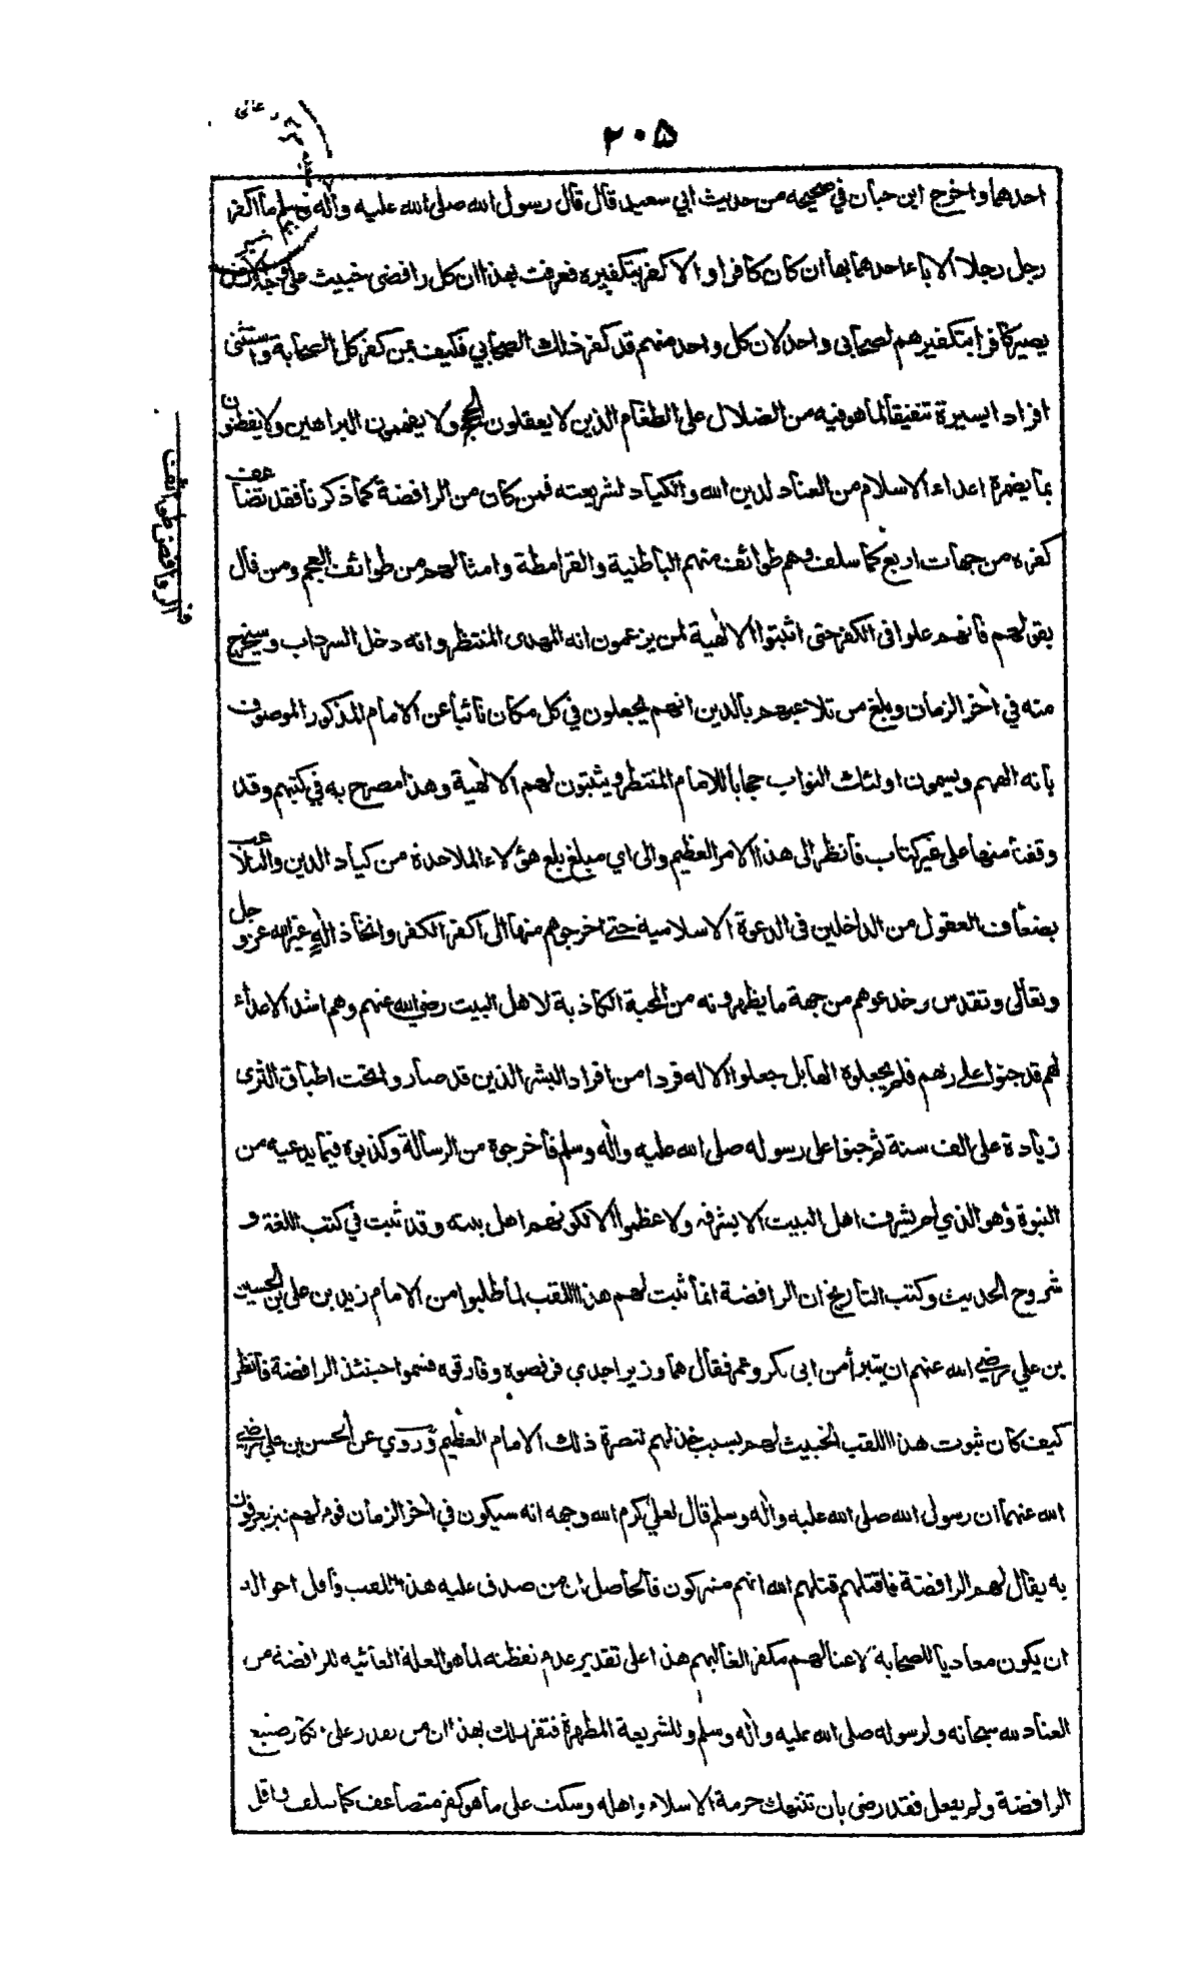 ٢٠٥
احدهما واخرج ابن حبان في صحيحه من حديث ابي سعيد قال قال رسول الله صلى الله عليه واله وسلم ما اكفر
رجل رجلا الا باء احدهما بها ان كان كافرا والا كفر بتكفيره فعرفت بهذا ان كل رافضى خبيث على وجه الارض
يصير كافرا بتكفيرهم لصحابى واحد لان كل واحد منهم قد كفر ذلك الصحابي فكيف بمن كفر كل الصحابة واستثنى
افرادا يسيرة تنفيقا لما هو فيه من الضلال على الطغام الذين لا يعقلون الحجج ولا يفهمون البراهين ولا يفطنون
بما يضمره اعداء الاسلام من العناد لدين الله والكياد لشريعته فمن كان من الرافضة كما ذكرنا فقد تضاعف
كفره من جهات اربع كما سلف وهم طوائف منهم الباطنية والقرامطة وامثالهم من طوائف العجم ومن قال
بقولهم فانهم غلوا فى الكفر حتى اثبتوا الالهية لمن يزعمون انه المهدى المنتظر وانه دخل السرداب وسيخرج
منه في اخر الزمان وبلغ من تلاعبهم بالدين انهم يجعلون في كل مكان نائبا عن الامام المذكور الموصوف
بانه الههم ويسمون اولئك النواب حجابا للامام المنتظر ويثبتون لهم الالهية وهذا مصرح به في كتبهم وقد
وقفنا منها على غير كتاب فانظر الى هذا الامر العظيم والى اي مبلغ بلغ هؤلاء الملاحدة من كياد الدين والتلاعب
بضعاف العقول من الداخلين فى الدعوة الاسلامية حتى اخرجوهم منها الى اكفر الكفر واتخاذ اله غير الله عز وجل
وتعالى وتقدس وخدعوهم من جهة ما يظهرونه من المحبة الكاذبة لاهل البيت رضي الله عنهم وهم اشد الاعداء
لهم قد جنوا على ربهم فلم يجعلوه الها بل جعلوا الاله فردا من افراد البشر الذين قد صاروا تحت اطباق الثرى
زيادة على الف سنة ثم جنوا على رسوله صلى الله عليه واله وسلم فاخرجوه من الرسالة وكذبوه فيما يدعيه من
النبوة وهو الذي لم يشرف اهل البيت الا بشرفه ولا عظموا الا لكونهم اهل بيته وقد ثبت في كتب اللغة و
شروح الحديث وكتب التاريخ ان الرافضة انما ثبت لهم هذا اللقب لما طلبوا من الامام زيد بن على بن الحسين
بن علي رضي الله عنهم ان يتبرأ من ابى بكر وعمر فقال هما وزيرا جدي فرفضوه وفارقوه فسموا حينئذ الرافضة فانظر
كيف كان ثبوت هذا اللقب الخبيث لهم بسبب خذلهم لنصرة ذلك الامام العظيم وروي عن الحسن بن علي رضي
الله عنهما ان رسول الله صلى الله عليه واله وسلم قال لعلي كرم الله وجهه انه سيكون في اخر الزمان قوم لهم نبز يعرفون
به يقال لهم الرافضة فاقتلهم قتلهم الله انهم مشركون فالحاصل ان من صدق عليه هذا اللقب فاقل احواله
ان يكون معاديا للصحابة لاعنا لهم مكفر الغالبهم هذا على تقدير عدم تفطنه لما هو العلة الغائية للرافضة من
العناد لله سبحانه ولرسوله صلى الله عليه واله وسلم وللشريعة المطهرة فتقرر لك بهذا ان من يقدر على
الرافضة ولم يفعل فقد رضى بان تنتهك حرمة الاسلام واهله وسكت على ما هو كفر متضاعف كما سلف واقل
الروافض طوائف